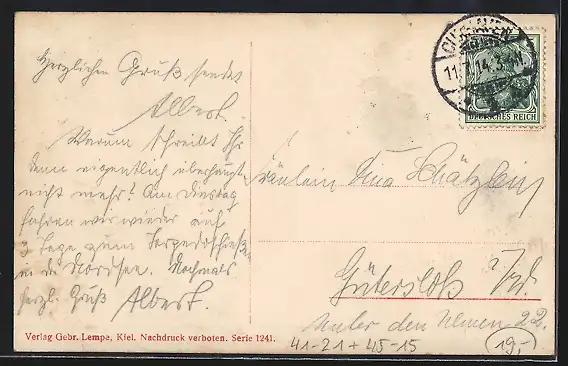 Herzlichen Gruß sendet
Albert.
Warum schreibt Ihr
denn eigentlich überhaupt
nicht mehr? Am Dienstag
fahren wir wieder auf
3 Tage zum Torpedoschieße
in die Nordsee. Nochmals
herzl. Gruß Albert.
Verlag Gebr. Lempe, Kiel. Nachdruck verboten. Serie 1241.
CUXHAVEN
11. 14. 3
DEUTSCHES REICH
Fräulein
Gütersloh
Unter den Ulmen 22.
41-21 + 45-15
19,-